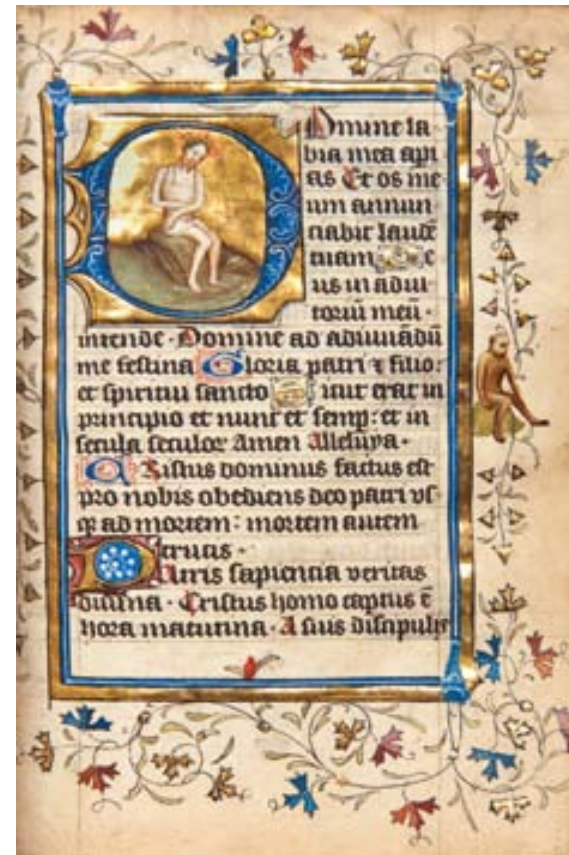 Domine la
bia mea api
as Et os me
um annun
ciabit laudē
tuam De
us in adiu
toriū meū ·
intende · Domine ad adiuuādū
me festina Gloria patri ⁊ filio:
et spiritui sancto Sicut erat in
principio et nunc et semp: et in
secula seculoꝝ Amen Alleluya ·
Xpistus dominus factus est
pro nobis obediens deo patri vs
qꝫ ad mortem: mortem autem
crucis ·
Patris sapiencia veritas
diuina · Cristus homo captus ē
hora matutina · A suis discipulis